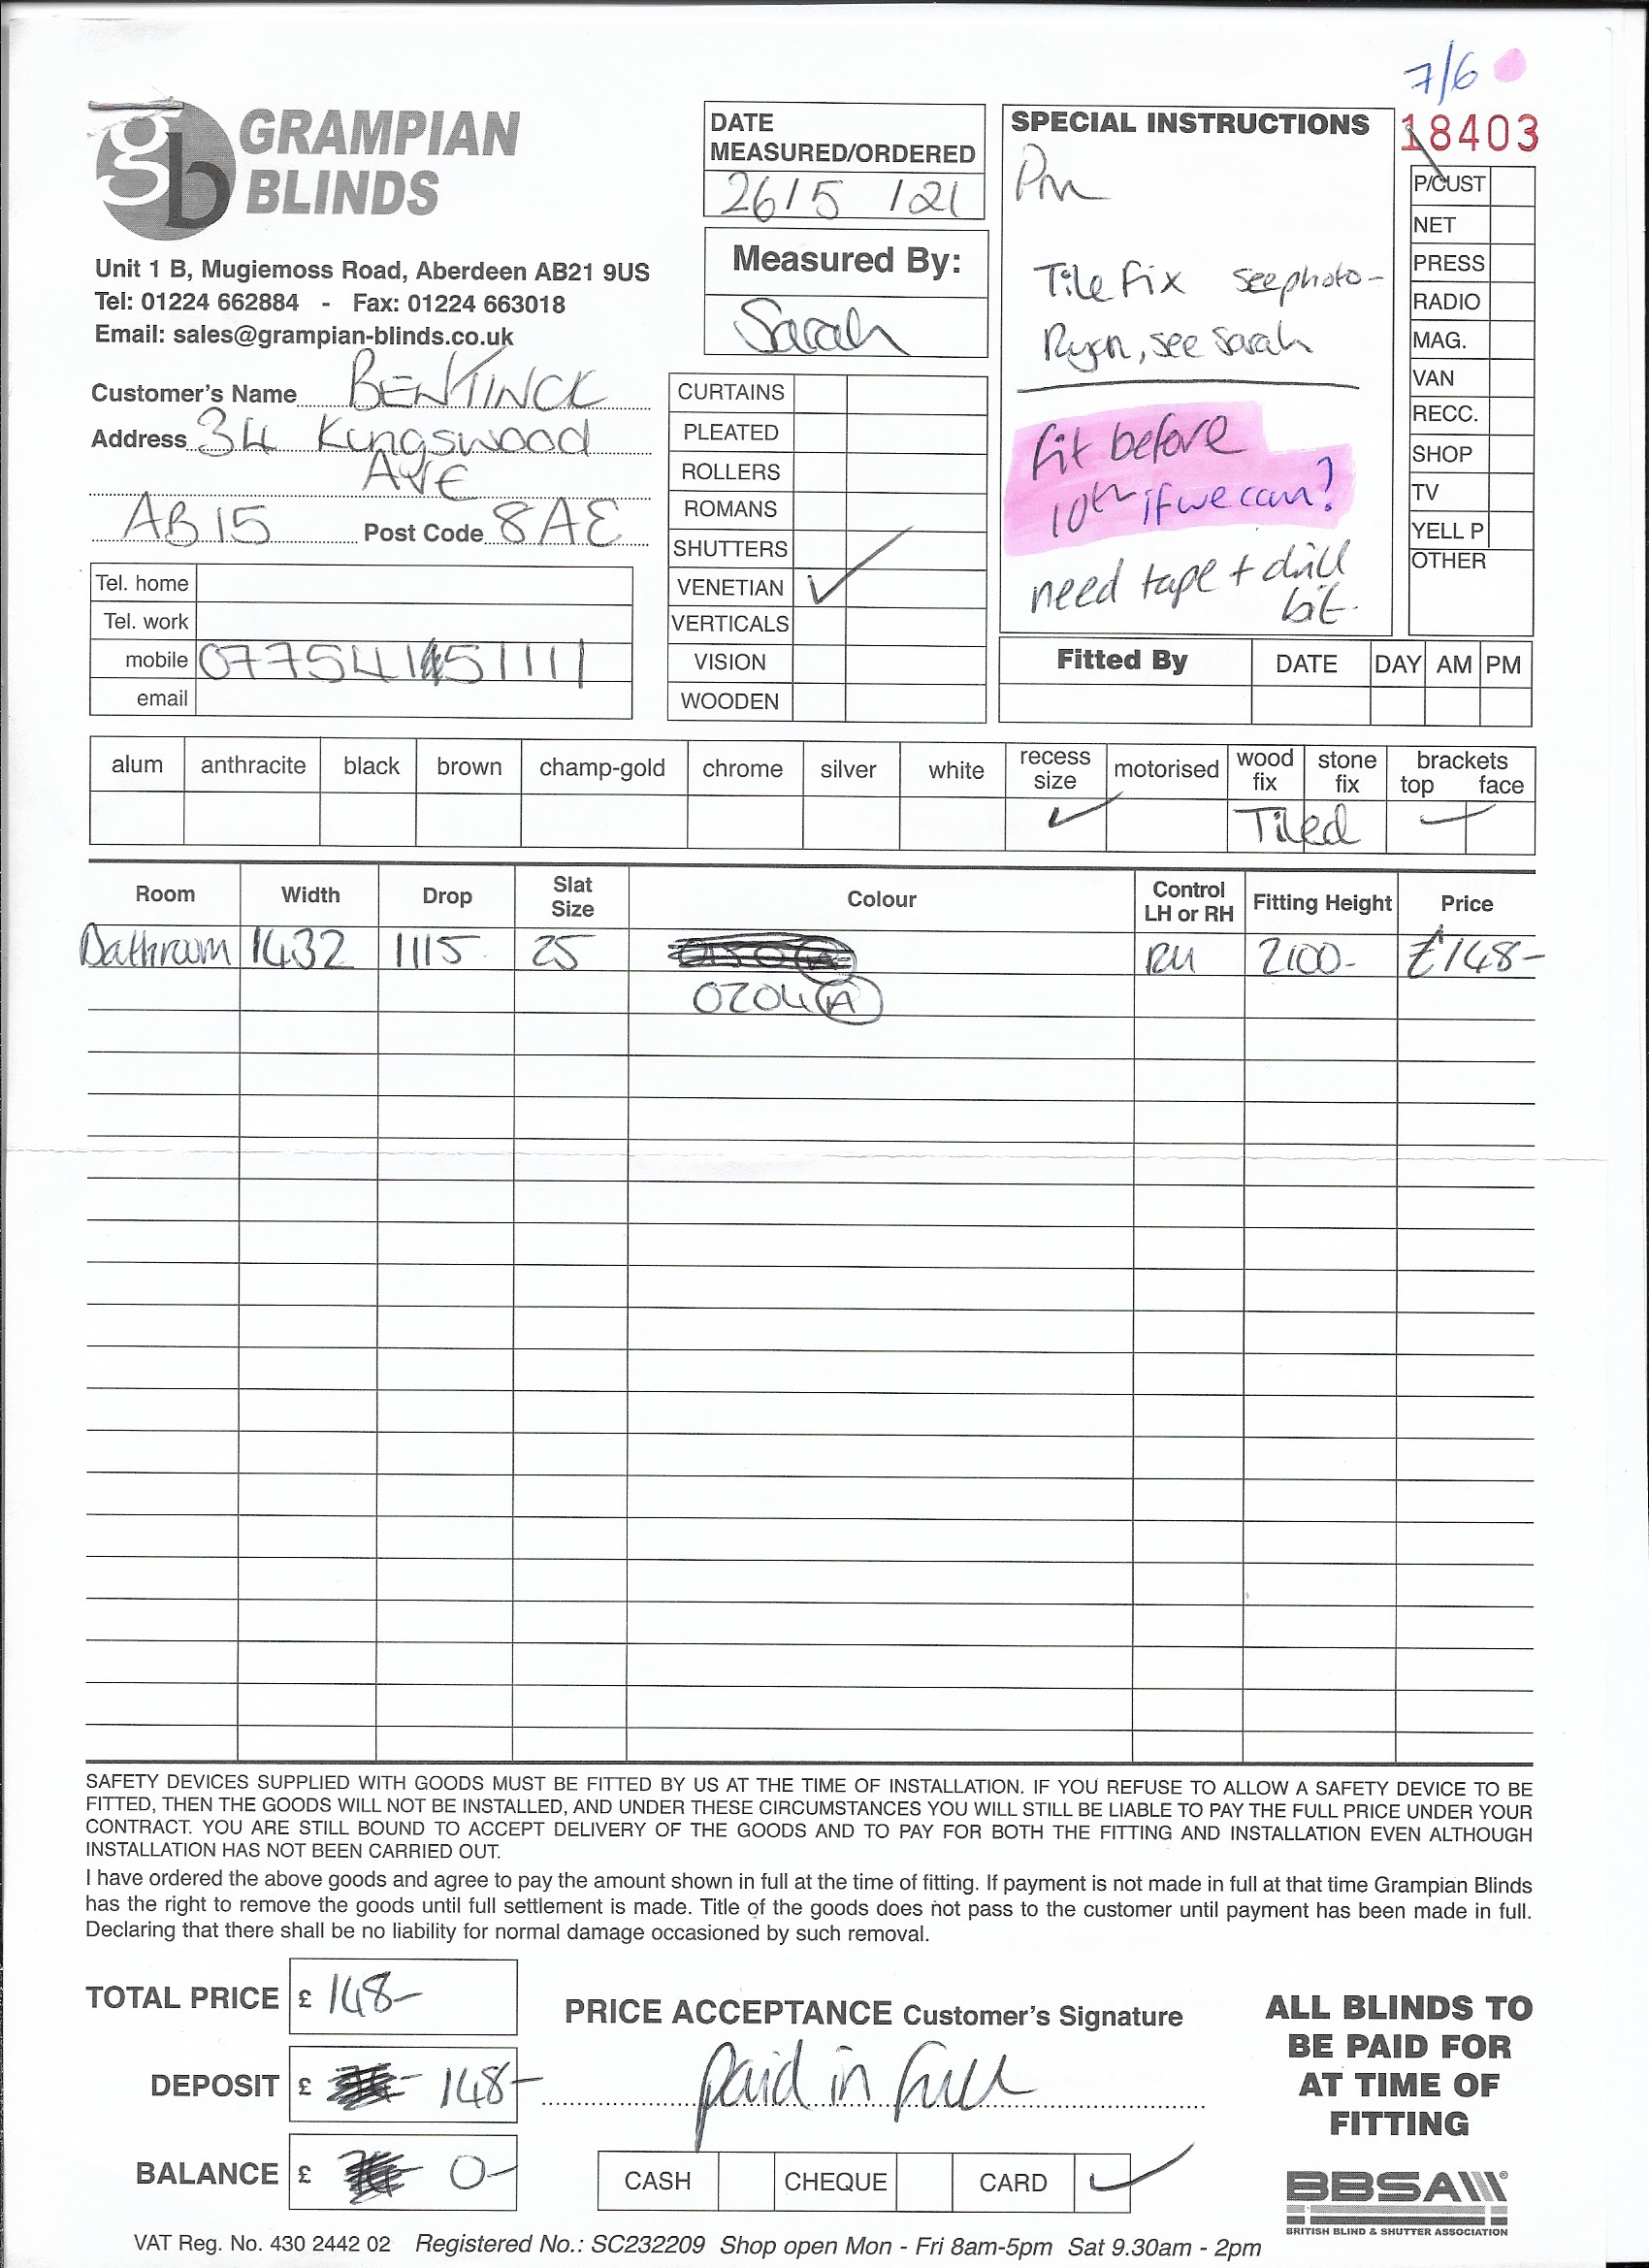 7/6
18403
gb GRAMPIAN
BLINDS
Unit 1 B, Mugiemoss Road, Aberdeen AB21 9US
Tel: 01224 662884 - Fax: 01224 663018
Email: sales@grampian-blinds.co.uk
Customer's Name BENTINCK
Address 34 Kingswood
AVE
AB15 Post Code 8AE
Tel. home
Tel. work
mobile
email
DATE
MEASURED/ORDERED
26/5 /21
Measured By:
Sarah
CURTAINS
PLEATED
ROLLERS
ROMANS
SHUTTERS
VENETIAN ✓
VERTICALS
VISION
WOODEN
SPECIAL INSTRUCTIONS
Pm
Tile Fix see photo-
Ryan, see Sarah
fit before
10th if we can?
need tape + drill
bit.
P/CUST
NET
PRESS
RADIO
MAG.
VAN
RECC.
SHOP
TV
YELL P
OTHER
Fitted By DATE DAY AM PM
alum anthracite black brown champ-gold chrome silver white recess size motorised wood fix stone fix brackets top face
✓ Tiled
Room Width Drop Slat Size Colour Control LH or RH Fitting Height Price
Bathroom 1432 1115 25 RH 2100- £148-
0204 (A)
SAFETY DEVICES SUPPLIED WITH GOODS MUST BE FITTED BY US AT THE TIME OF INSTALLATION. IF YOU REFUSE TO ALLOW A SAFETY DEVICE TO BE
FITTED, THEN THE GOODS WILL NOT BE INSTALLED, AND UNDER THESE CIRCUMSTANCES YOU WILL STILL BE LIABLE TO PAY THE FULL PRICE UNDER YOUR
CONTRACT. YOU ARE STILL BOUND TO ACCEPT DELIVERY OF THE GOODS AND TO PAY FOR BOTH THE FITTING AND INSTALLATION EVEN ALTHOUGH
INSTALLATION HAS NOT BEEN CARRIED OUT.
I have ordered the above goods and agree to pay the amount shown in full at the time of fitting. If payment is not made in full at that time Grampian Blinds
has the right to remove the goods until full settlement is made. Title of the goods does not pass to the customer until payment has been made in full.
Declaring that there shall be no liability for normal damage occasioned by such removal.
TOTAL PRICE £ 148-
DEPOSIT £ 148-
BALANCE £ 0-
PRICE ACCEPTANCE Customer's Signature
paid in full
CASH CHEQUE CARD ✓
ALL BLINDS TO
BE PAID FOR
AT TIME OF
FITTING
BBSA
BRITISH BLIND & SHUTTER ASSOCIATION
VAT Reg. No. 430 2442 02 Registered No.: SC232209 Shop open Mon - Fri 8am-5pm Sat 9.30am - 2pm